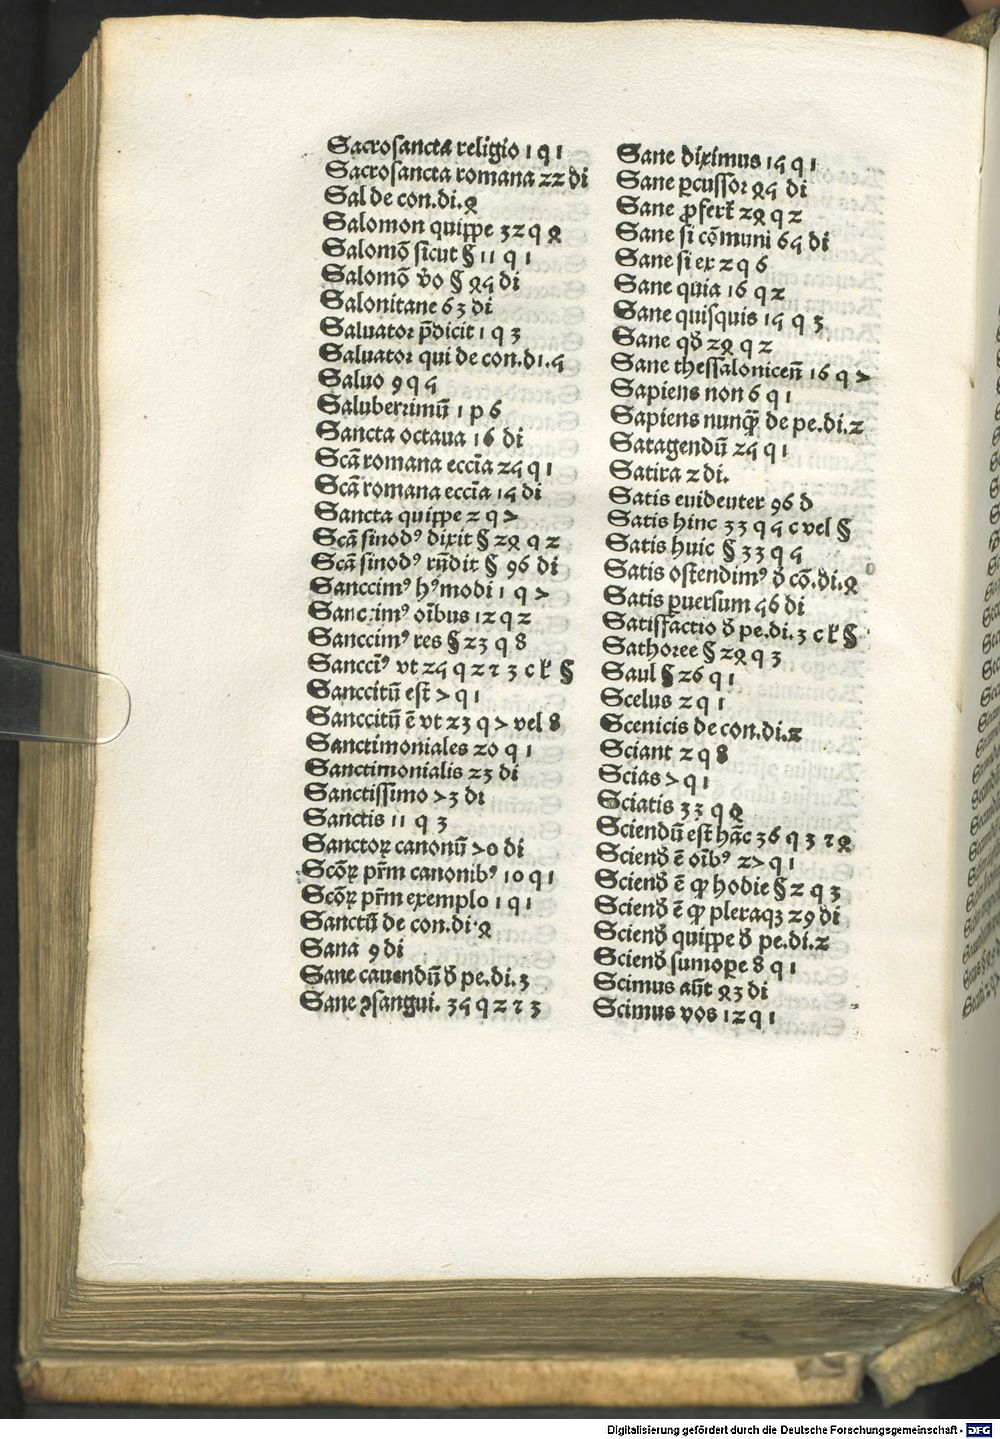 Sacrosancta religio 1 q 1
Sacrosancta romana 22 di
Sal de con.di.4
Salomon quippe 32 q 4
Salomō sicut § 11 q 1
Salomō v̄o § 45 di
Salonitane 63 di
Saluator p̄dicit 1 q 3
Saluator qui de con.di.5
Saluo 9 q 5
Saluberrimū 1 p 6
Sancta octaua 16 di
Scā romana eccīa 25 q 1
Scā romana eccīa 15 di
Sancta quippe 2 q 7
Scā sinodꝰ dixit § 24 q 2
Scā sinodꝰ rn̄dit § 96 di
Sanccimꝰ hꝰmodi 1 q 7
Sanccimꝰ oībus 12 q 2
Sanccimꝰ res § 23 q 8
Sanccīꝰ vt 25 q 2 ⁊ 3 c ł §
Sanccitū est̄ 7 q 1
Sanccitū ē vt 23 q 7 vel 8
Sanctimoniales 20 q 1
Sanctimonialis 23 di
Sanctissimo 73 di
Sanctis 11 q 3
Sanctoꝝ canonū 70 di
Scōꝝ pr̄m canonibꝰ 10 q 1
Scōꝝ pr̄m exemplo 1 q 1
Sanctū de con.di.4
Sana 9 di
Sane cauendū ꝺ̄ pe.di.3
Sane ꝯsangui. 35 q 2 ⁊ 3
Sane diximus 15 q 1
Sane ꝑcussor 45 di
Sane ꝓfert̄ 24 q 2
Sane si cōmuni 65 di
Sane si ex 2 q 6
Sane quia 16 q 2
Sane quisquis 15 q 3
Sane qꝺ̄ 24 q 2
Sane thessalonicen̄ 16 q 7
Sapiens non 6 q 1
Sapiens nunq̄ de pe.di.2
Satagendū 25 q 1
Satira 2 di.
Satis euidenter 96 d
Satis hinc 33 q 5 c vel §
Satis huic § 33 q 5
Satis ostendimꝰ ꝺ̄ cō.di.4
Satis ꝑuersum 56 di
Satisfactio ꝺ̄ pe.di.3 c ł §
Sathoree § 24 q 3
Saul § 26 q 1
Scelus 2 q 1
Scenicis de con.di.2
Sciant 2 q 8
Scias 7 q 1
Sciatis 33 q 4
Sciendū est̄ hāc 36 q 3 ⁊ 4
Scienꝺ̄ ē oībꝰ 27 q 1
Scienꝺ̄ ē ꝙ hodie § 2 q 3
Scienꝺ̄ ē ꝙ pleraqꝫ 29 di
Scienꝺ̄ quippe ꝺ̄ pe.di.2
Scienꝺ̄ sumope 8 q 1
Scimus aūt 43 di
Scimus vos 12 q 1
Digitalisierung gefördert durch die Deutsche Forschungsgemeinschaft - DFG